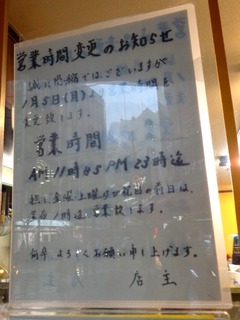 営業時間変更のお知らせ
誠に恐縮ではございますが
1月5日(月)より
変更致します。
営業時間
AM 11時~PM 23時迄
但し金曜、土曜及び祝日の前日は、
営業致します。
何卒、よろしくお願い申し上げます。
店主